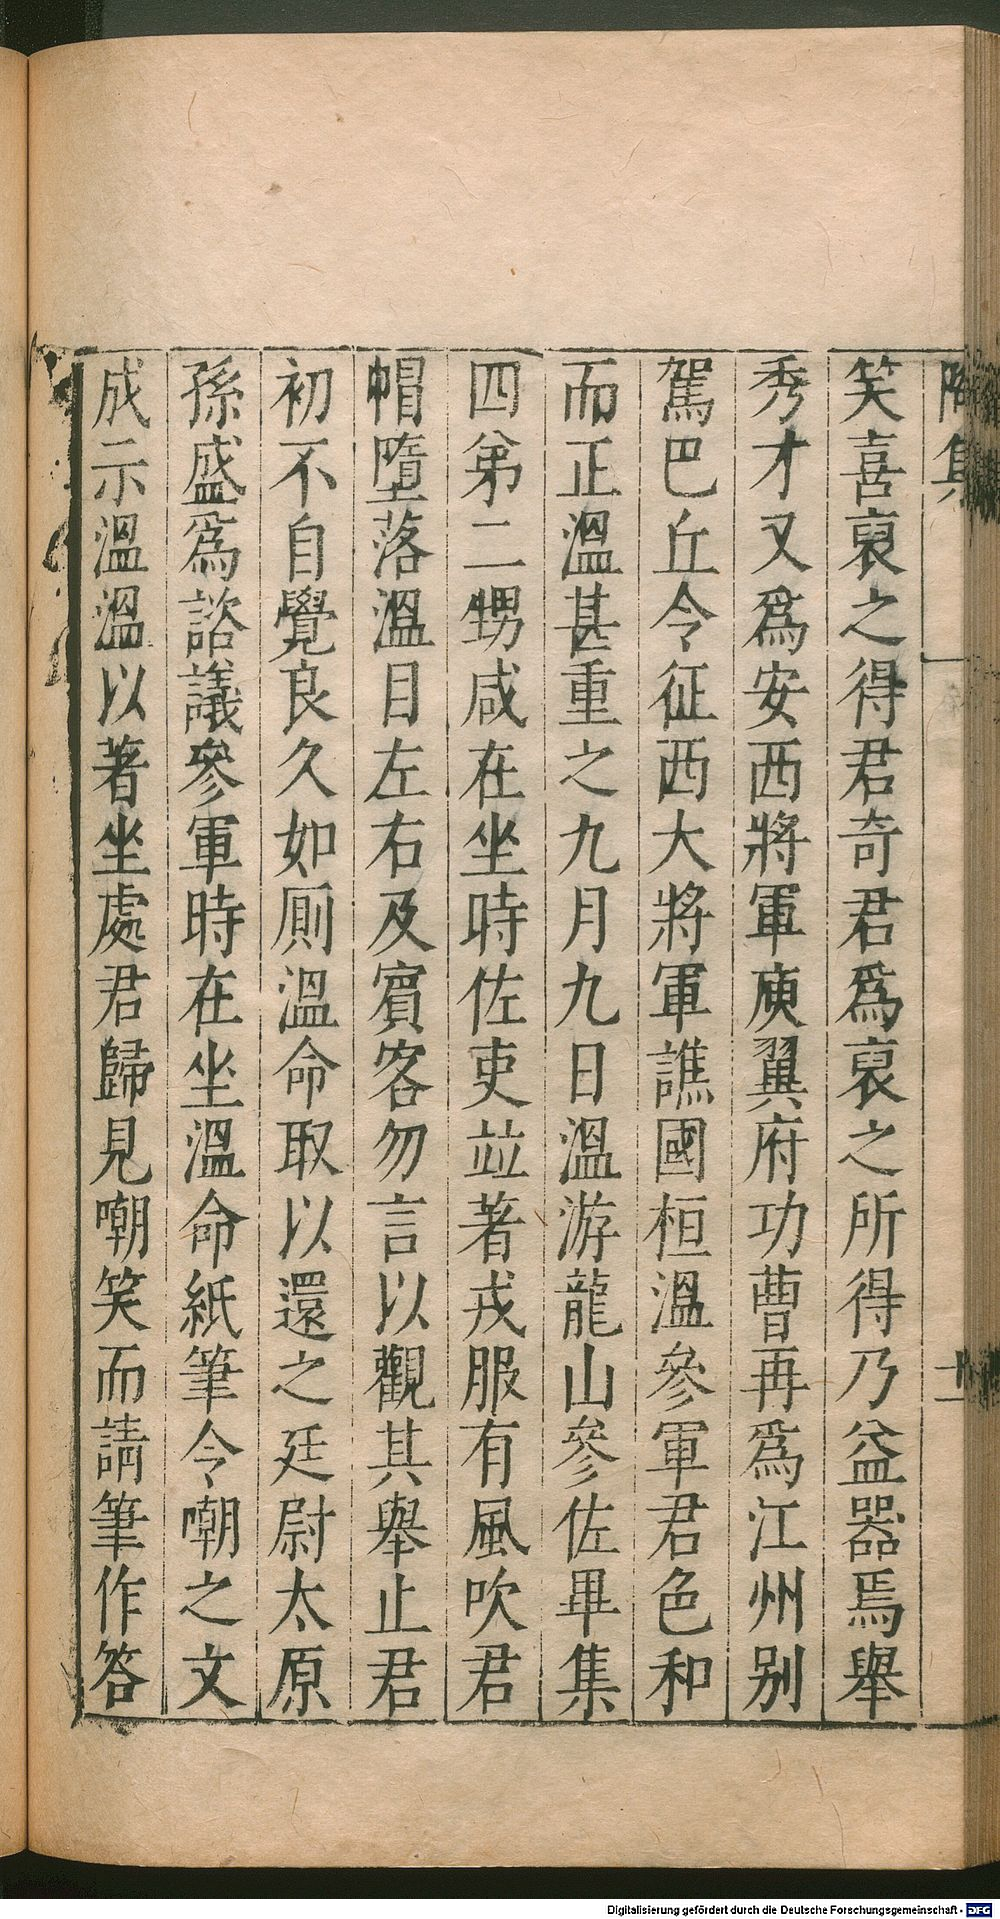 陶集
十一
笑喜裒之得君奇君爲裒之所得乃益器焉舉
秀才又爲安西將軍庾翼府功曹再爲江州别
駕巴丘令征西大將軍譙國桓溫參軍君色和
而正溫甚重之九月九日溫游龍山參佐畢集
四弟二甥咸在坐時佐吏竝著戎服有風吹君
帽墮落溫目左右及賓客勿言以觀其舉止君
初不自覺良久如厠溫命取以還之廷尉太原
孫盛爲諮議參軍時在坐溫命紙筆令嘲之文
成示溫溫以著坐處君歸見嘲笑而請筆作答
Digitalisierung gefördert durch die Deutsche Forschungsgemeinschaft - DFG